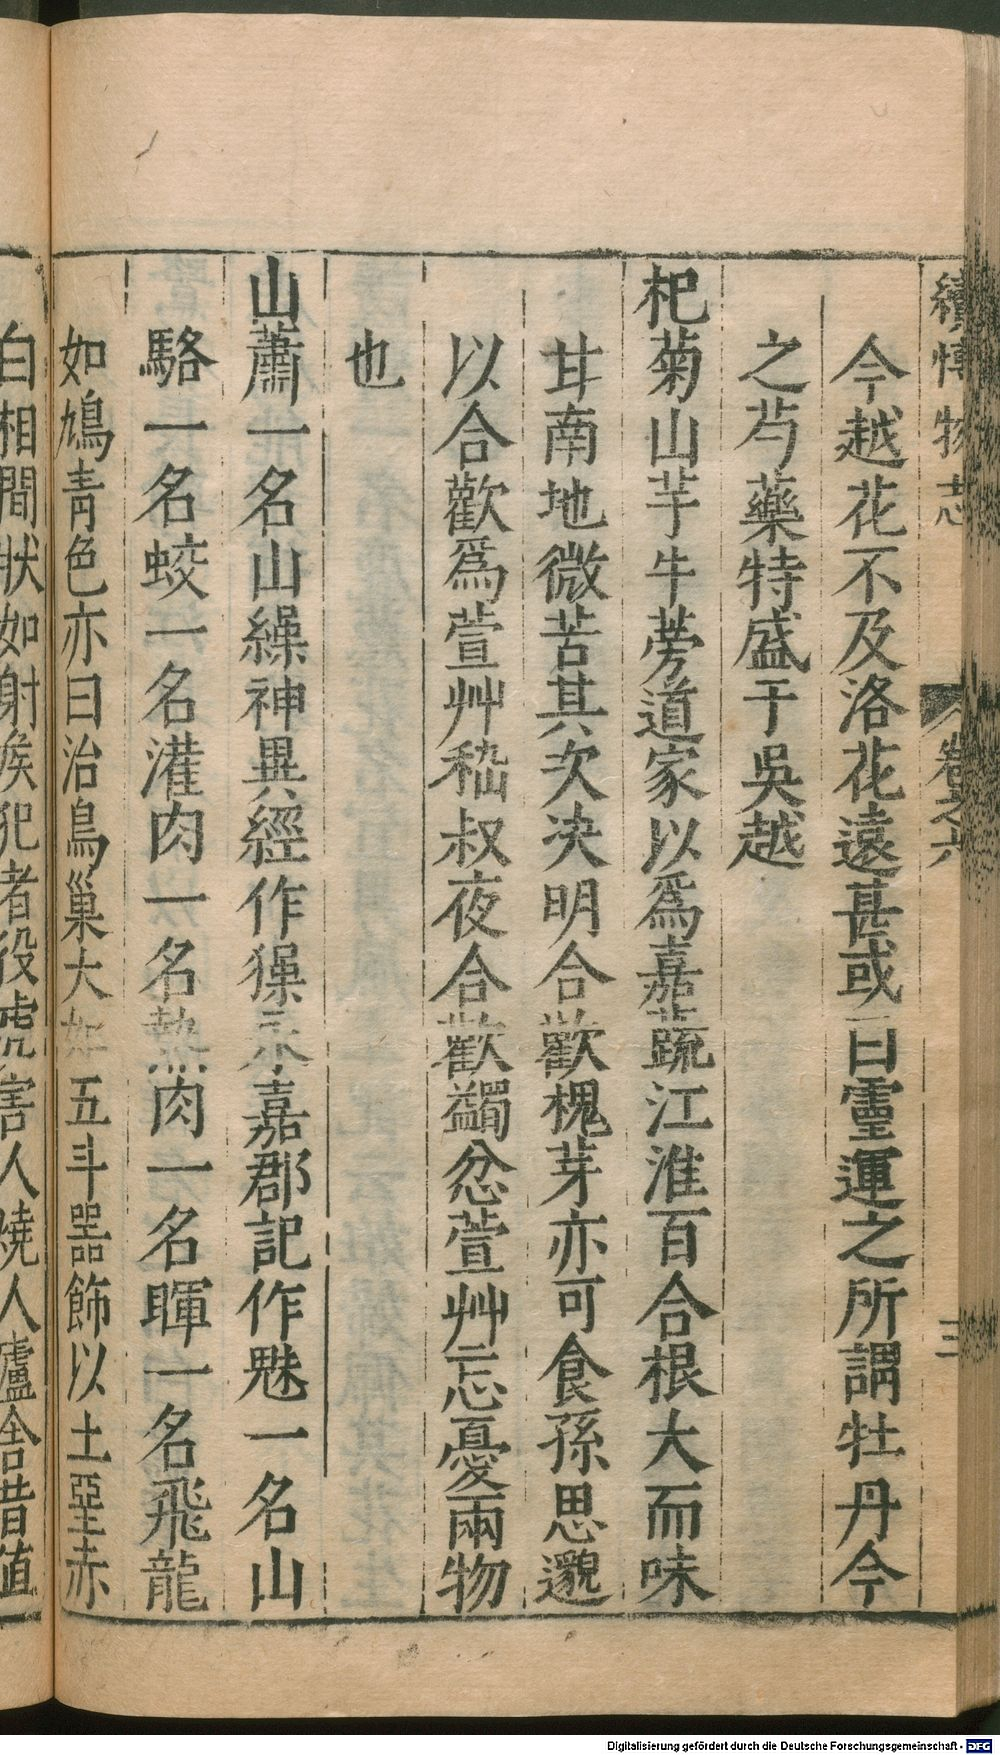 續博物志 卷之六 三
今越花不及洛花遠甚或曰靈運之所謂牡丹今
之芍藥特盛于吳越
杞菊山芋牛蒡道家以爲嘉蔬江淮百合根大而味
甘南地微苦其次决明合歡槐芽亦可食孫思邈
以合歡爲萱艸嵇叔夜合歡蠲忿萱艸忘憂兩物
也
山蕭一名山繰神異經作㺑永嘉郡記作魅一名山
駱一名蛟一名濯肉一名熱肉一名暉一名飛龍
如鳩青色亦曰治鳥巢大如五斗器飾以土堊赤
白相間狀如射侯犯者役虎害人燒人廬舍昔值
Digitalisierung gefördert durch die Deutsche Forschungsgemeinschaft - DFG